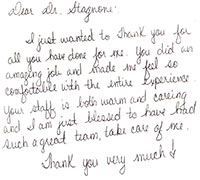 Dear Dr. Stagnone:
I just wanted to thank you for
all you have done for me. You did an
amazing job and made me feel so
comfortable with the entire experience.
Your staff is both warm and caring
and I am just blessed to have had
such a great team, take care of me.
Thank you very much!